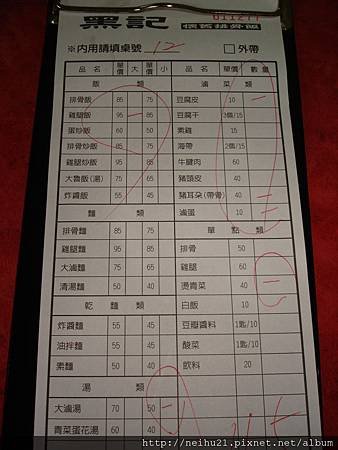 黑記 懷舊排骨飯
※內用請填桌號 12 □外帶
品名 單價 大 單價 小 品名 單價 數量
飯類 滷菜類
排骨飯 85 75 豆腐皮 10 一
雞腿飯 95 一 85 豆腐干 3個/15
蛋炒飯 60 50 素雞 15
排骨炒飯 85 75 海帶 2個/15
雞腿炒飯 95 85 牛腱肉 60
大魯飯(湯) 75 65 豬頭皮 40
炸醬飯 55 45 豬耳朵(帶骨) 40
麵類 滷蛋 10 二
排骨麵 85 75 單點類
雞腿麵 95 85 排骨 50
大滷麵 75 65 雞腿 60
清湯麵 50 40 燙青菜 40 一
乾麵類 白飯 10
炸醬麵 55 45 豆瓣醬料 1匙/10
油拌麵 55 45 酸菜 1匙/10
素麵 50 40 飲料 20
湯類
大滷湯 70 50 一
青菜蛋花湯 60 40
http://neihu21.pixnet.net/album